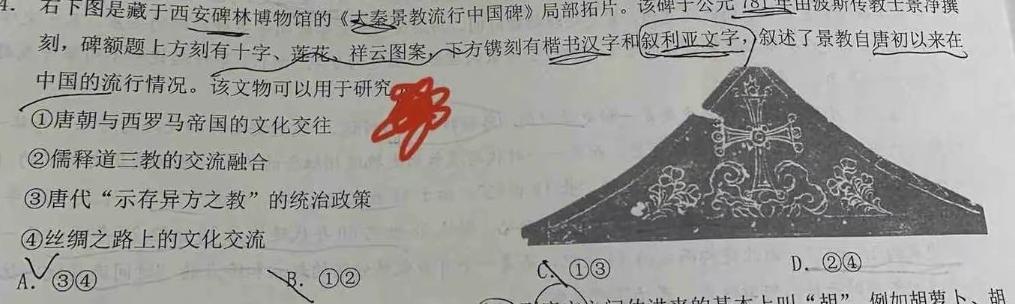 4. 右下图是藏于西安碑林博物馆的《大秦景教流行中国碑》局部拓片。该碑于公元781年由波斯传教士景净撰
刻，碑额题上方刻有十字、莲花、祥云图案，下方镌刻有楷书汉字和叙利亚文字，叙述了景教自唐初以来在
中国的流行情况。该文物可以用于研究
①唐朝与西罗马帝国的文化交往
②儒释道三教的交流融合
③唐代“示存异方之教”的统治政策
④丝绸之路上的文化交流
A. ③④ B. ①② C. ①③ D. ②④
基本上叫“胡”，例如胡萝卜、胡